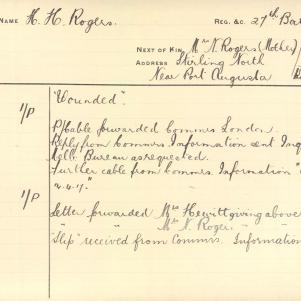 NAME H. H. Rogers. REG. &C. 27th Bat
NEXT OF KIN Mrs N. Rogers (Mother)
ADDRESS Stirling North
Near Port Augusta
1/P "Wounded".
P/Cable forwarded Commrs London.
Reply from Commrs Information sent Inq
Melb Bureau as requested.
Further cable from Commrs. Information "
2.4.17."
1/P Letter forwarded Mrs Hewitt giving above
" " Mrs N. Roger "
"Slip" received from Commrs. Information